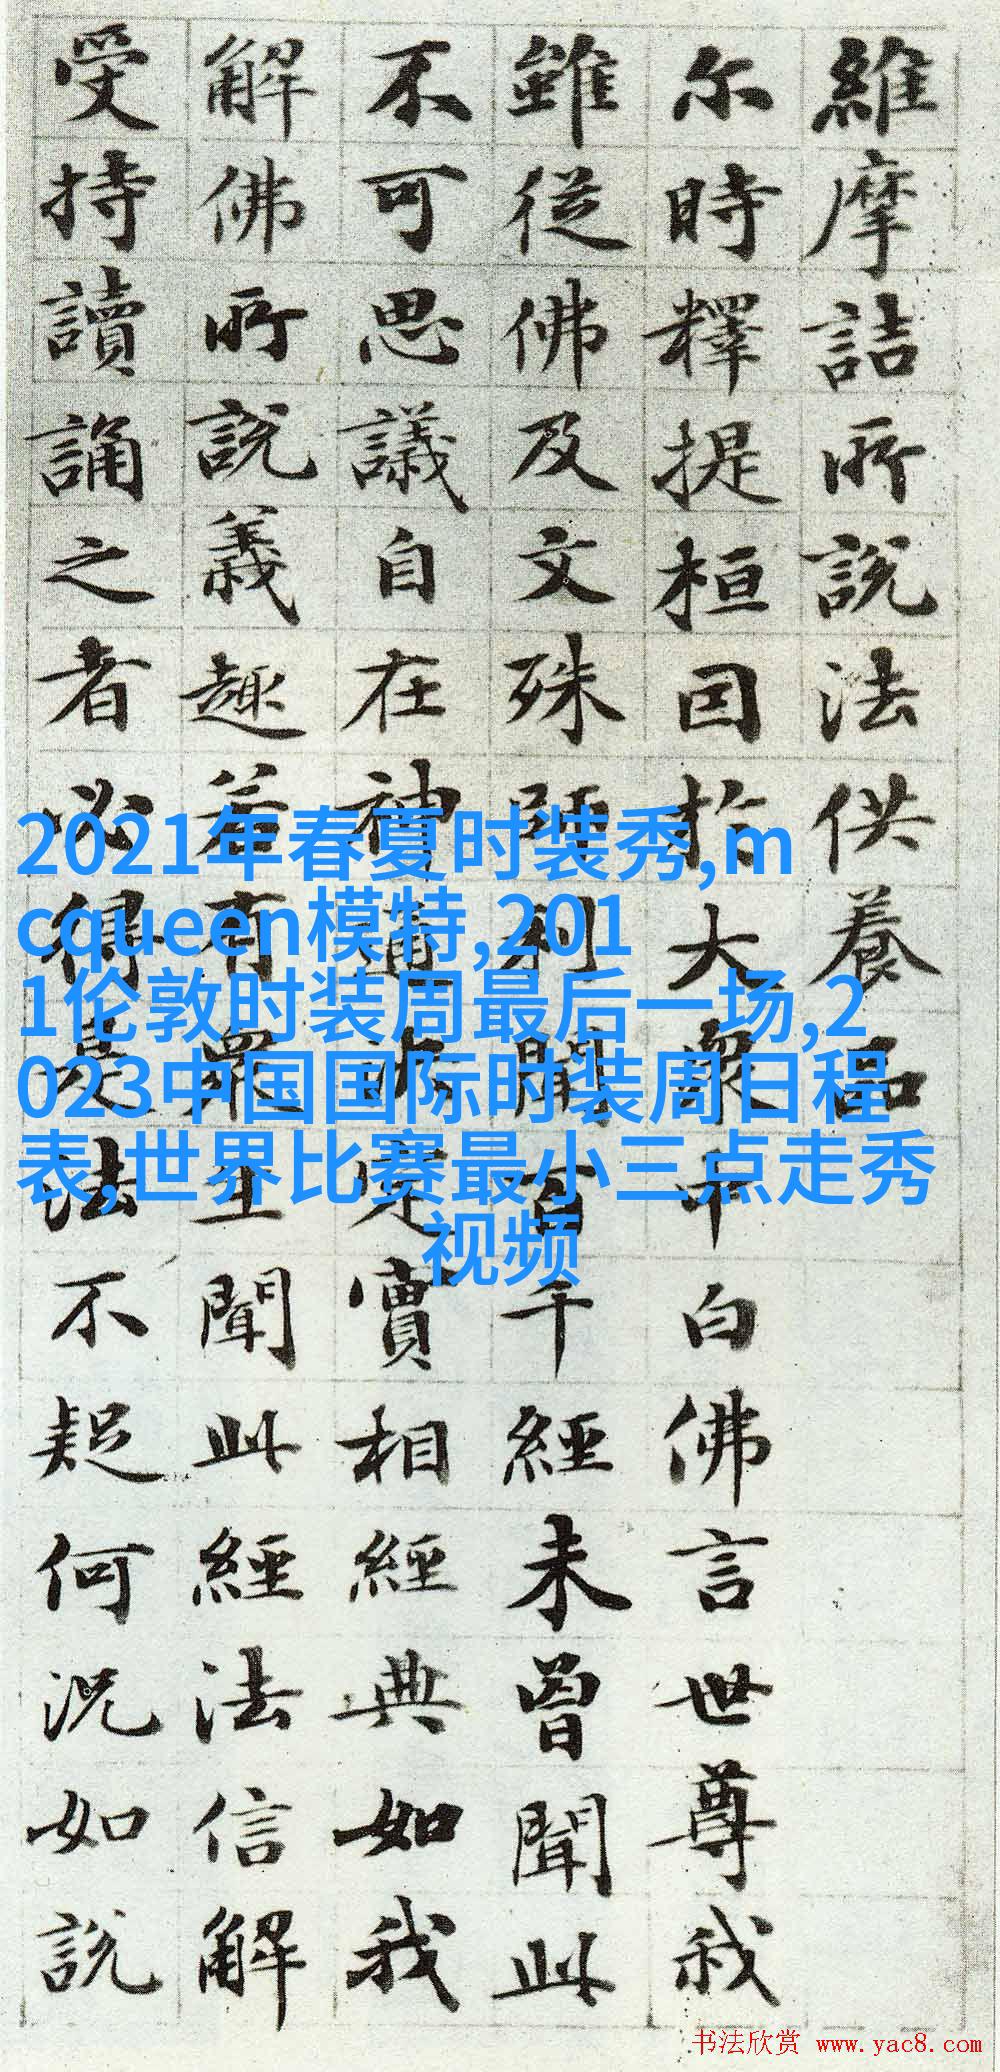 維摩詰所説法供養品
尔時釋提桓因於大衆中白佛言世尊我
雖從佛及文殊師利聞百千經未曾聞此
不可思議自在神通决定實相經典如我
解佛所説義趣若有衆生聞此經法信解
受持讀誦之者必得是法不疑何況如説
2021年春夏时装秀,m
cqueen模特,201
1伦敦时装周最后一场,2
023中国国际时装周日程
表,世界比赛最小三点走秀
视频
书法欣赏 www.yac8.com